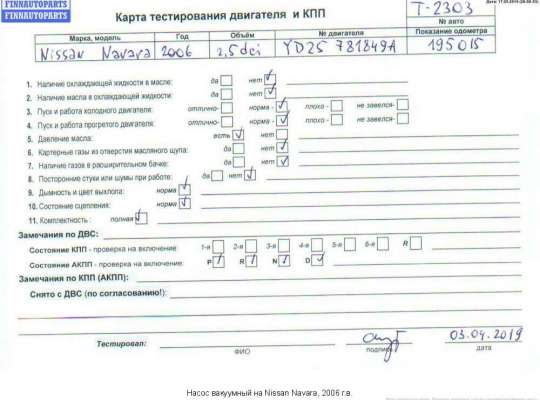 FINNAUTOPARTS
FINNAUTOPARTS
Карта тестирования двигателя и КПП
T-2303
№ авто
Марка, модель Год Объём № двигателя Показание одометра
Nissan Navara 2006 2,5 dci YD25 781849A 195015
1. Наличие охлаждающей жидкости в масле: да нет
2. Наличие масла в охлаждающей жидкости: да нет
3. Пуск и работа холодного двигателя: отлично- норма - плохо - не завелся-
4. Пуск и работа прогретого двигателя: отлично- норма - плохо - не завелся-
5. Давление масла: есть нет
6. Картерные газы из отверстия масляного щупа: да нет
7. Наличие газов в расширительном бачке: да нет
8. Посторонние стуки или шумы при работе: да нет
9. Дымность и цвет выхлопа: норма
10. Состояние сцепления: норма
11. Комплектность : полная
Замечания по ДВС:
Состояние КПП - проверка на включение: 1-я 2-я 3-я 4-я 5-я 6-я R
Состояние АКПП - проверка на включение: P R N D
Замечания по КПП (АКПП):
Снято с ДВС (по согласованию!):
03.04.2019
Тестировал: ФИО подпись дата
Насос вакуумный на Nissan Navara, 2006 г.в.